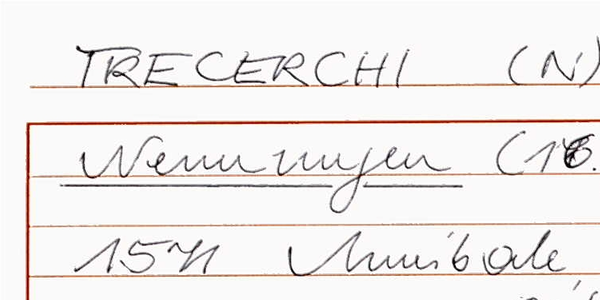 TRECERCHI (N)
Nennungen (16.
1571 Annibale